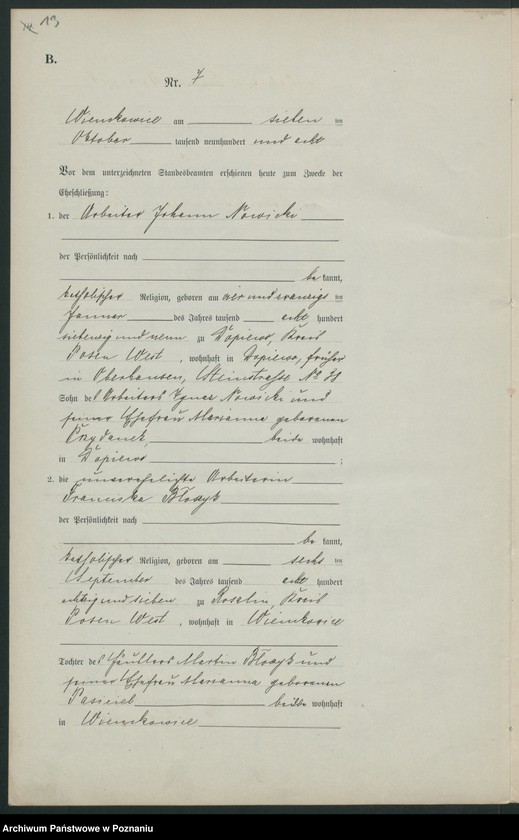 13
B.
Nr. 7
Wienckowice am sieben ten
Oktober tausend neunhundert und acht
Vor dem unterzeichneten Standesbeamten erschienen heute zum Zwecke der
Eheschließung:
1. der Arbeiter Johann Nowicki
der Persönlichkeit nach
be kannt,
katholischer Religion, geboren am vier und zwanzigs ten
Januar des Jahres tausend acht hundert
siebenzig und neun zu Dopiewo, Kreis
Posen West, wohnhaft in Dopiewo, früher
in Oberhausen, Steinstrasse No
Sohn des Arbeiters Ignac Nowicki und
seiner Ehefrau Marianna geborenen
Przydanek, beide wohnhaft
in Dopiewo ;
2. die unverehelichte Arbeiterin
Franciska
der Persönlichkeit nach
be kannt,
katholischer Religion, geboren am sechs ten
September des Jahres tausend acht hundert
achtzig und sieben zu Kreis
Posen West, wohnhaft in Wienckowice
Tochter des Häuslers Martin und
seiner Ehefrau Marianna geborenen
beide wohnhaft
in Wienckowice
Archiwum Państwowe w Poznaniu